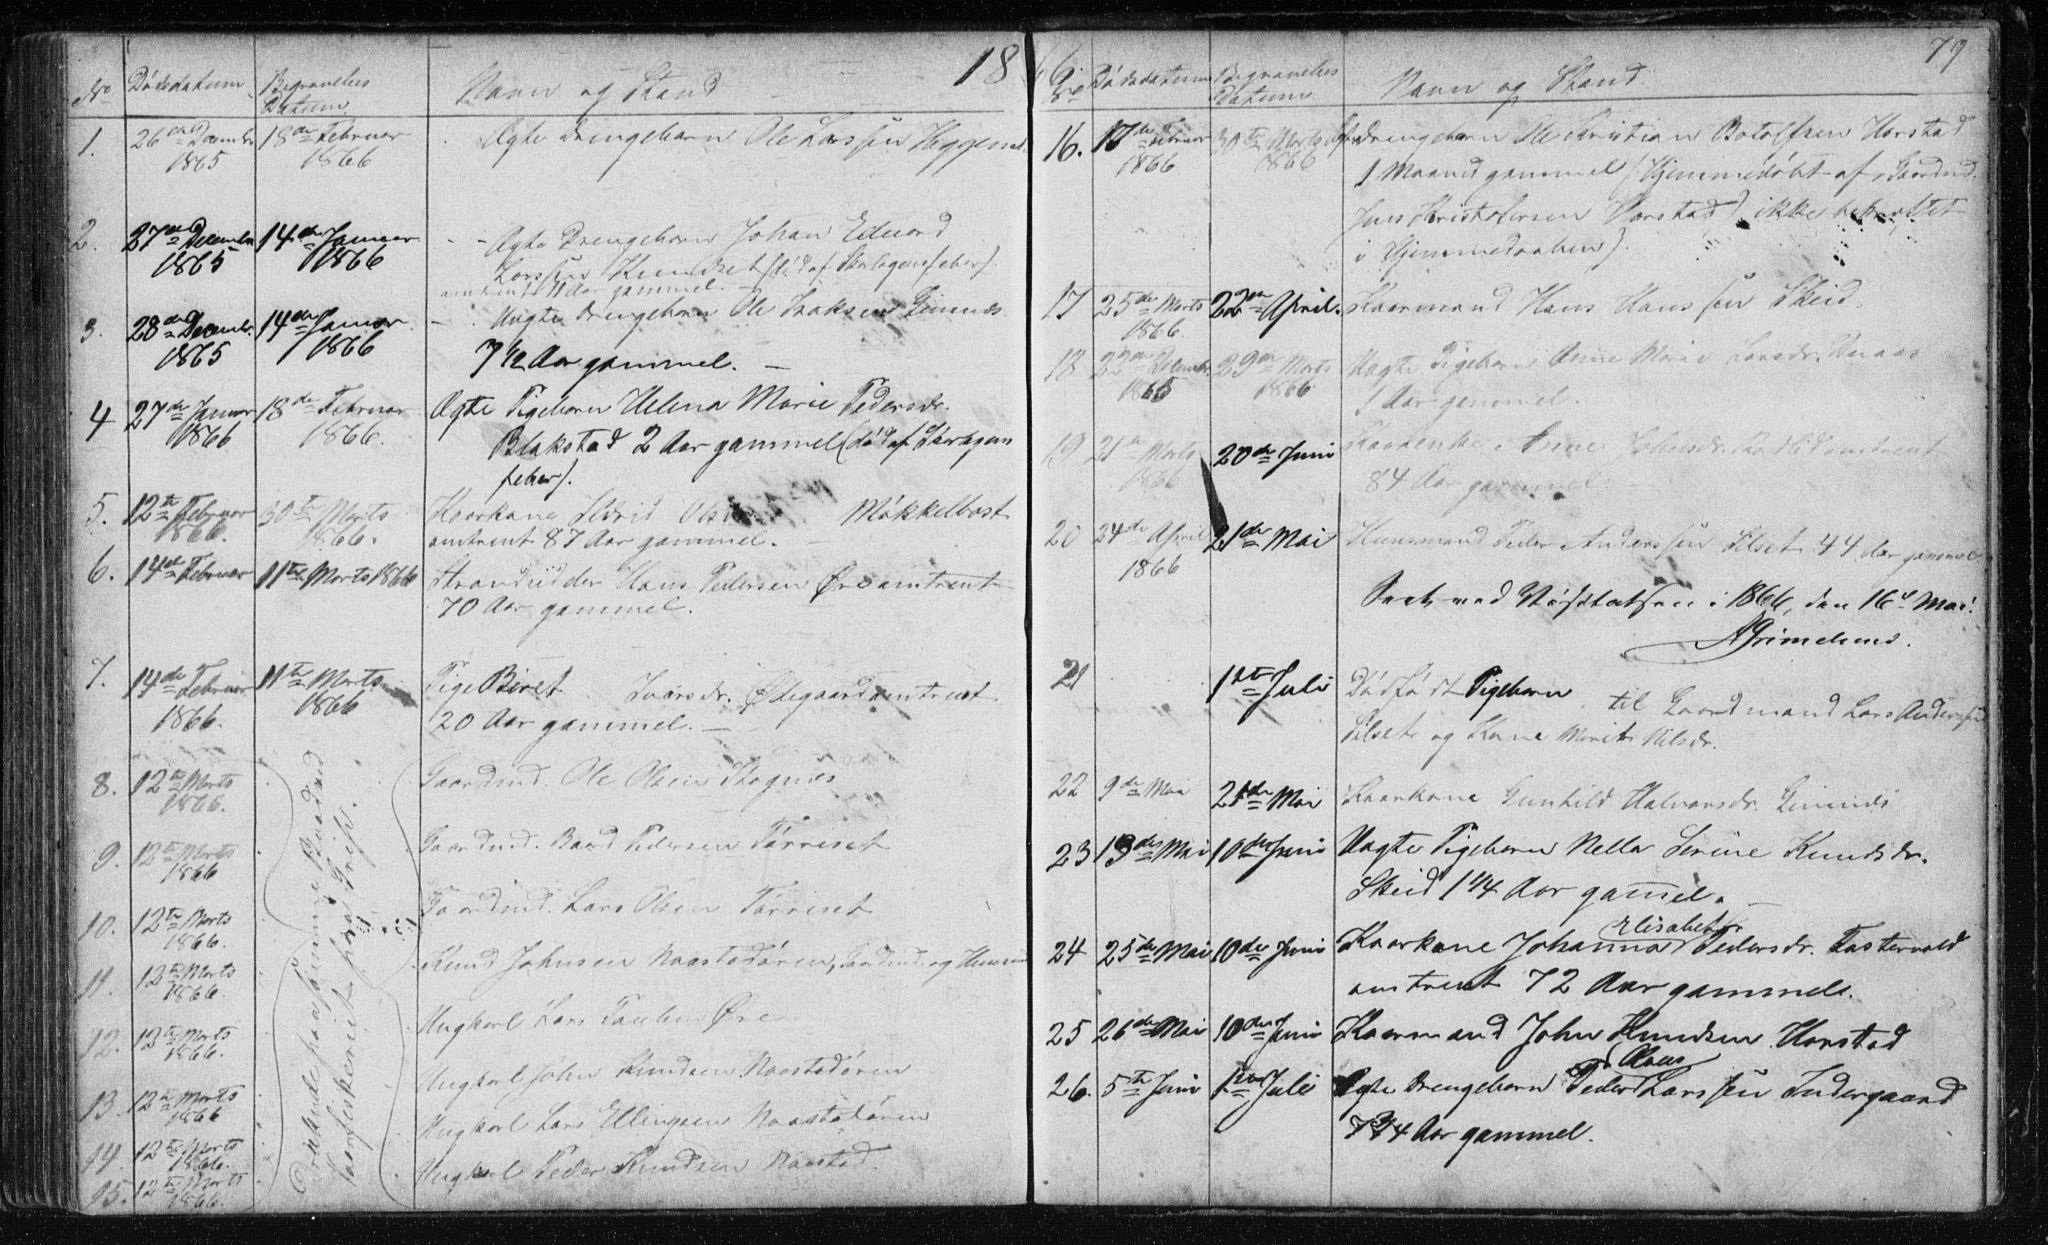 1866
79
No Dødsdatum Begravelses Datum Navn og Stand
1. 26de Decembr 1865 18de Februar 1866 Ægte Drengebarn Ole Larssen Heggem
2. 27de Decembr 1865 14de Januar 1866 Ægte Drengebarn Johan Eduard
Larssen Kundset (død af Skarlagensfeber).
omtrent 11 Aar gammel. –
3. 28de Decembr 1865 14de Januar 1866 Uægte Drengebarn Ole Isaksen Gimnæs
7 1/2 Aar gammel. –
4 27de Januar 1866 18de Februar 1866. Ægte Pigebarn Helena Marie Pedersdr.
Blakstad 2 Aar gammel (død af Skarlagens
feber).
5. 12te Februar 1866. 30te Marts 1866. Kaarkone Sidrid Ols Møkkelbost
omtrent 87 Aar gammel. –
6. 14de Februar 11te Marts 1866 Strandsidder Hans Pedersen Øre omtrent
70 Aar gammel.
7. 14de Februar 1866. 11te Marts 1866 Pige Beret Ivarsdr. Ødegaard omtrent
20 Aar gammel. –
8. 12te Marts 1866. Gaardmd. Ole Olsen Stognæs
9. 12te Marts 1866 Gaardmd. Baard Pedersen Tørriset
10. 12te Marts 1866. Gaardmd. Lars Olsen Tørriset
11. 12te Marts 1866. Knud Johnsen Naastadøren, Gaardmd. og
12. 12te Marts 1866. Ungkarl Lars Paulsen Øre
13. 12te Marts 1866 Ungkarl John Knudsen Naastadøren
14. 12te Marts 1866. Ungkarl Lars Ellingsen Naastadøren
15. 12te Marts 1866. Ungkarl Peder Knudsen Naastad.
Druknede paa samme Baad ved
Vaarfiskeriet paa Grip.
No Dødsdatum Begravelses datum Navn og Stand.
16. 17de Februar 1866 30te Marts 1866 Ægte Drengebarn Ole Kristian Botolfsen Harstad
1 Maaned gammel (Hjemmedøbt af Gaardmd.
Jens Kristofersen Harstad, ikke bekræftet
i Hjemmedaaben).
17 25de Marts 1866. 22de April. Kaarmand Hans Hanssen Skeid.
18 22de Decembr. 1865 29de Marts 1866 Uægte Pigebarn Anne Marie Larsdr.
1 Aar gammel
19 21de Marts 1866 20de Juni Kaarenke Anne Johnsdr. omtrent
84 Aar gammel. –
20 24de April 1866 21de Mai Huusmand Peder Anderssen Silset 44 Aar gammel
Seet ved Visitatsen i 1866, den 16de Mai.
AGrimelund.
21 1ste Juli Dødfødt Pigebarn til Gaardmand Lars Anderssen
Silset og Kone Marit Nilsdr.
22 9de Mai 21de Mai Kaarkone Gunhild Halvorsdr. Gimnæs
23 13de Mai 10de Juni Uægte Pigebarn Nella Serine Knudsdr.
Skeid 1 1/4 Aar gamel. –
24 25de Mai 10de Juni Kaarkone Johanna Elisabeth Pedersdr. Fostervold
omtrent 72 Aar gammel.
25 26de Mai 10de Juni Kaarmand John Knudsen Harstad
26. 5te Juni 1ste Juli Ægte Drengebarn Peder Claus Larssen Indergaard
7 3/4 Aar gammel.